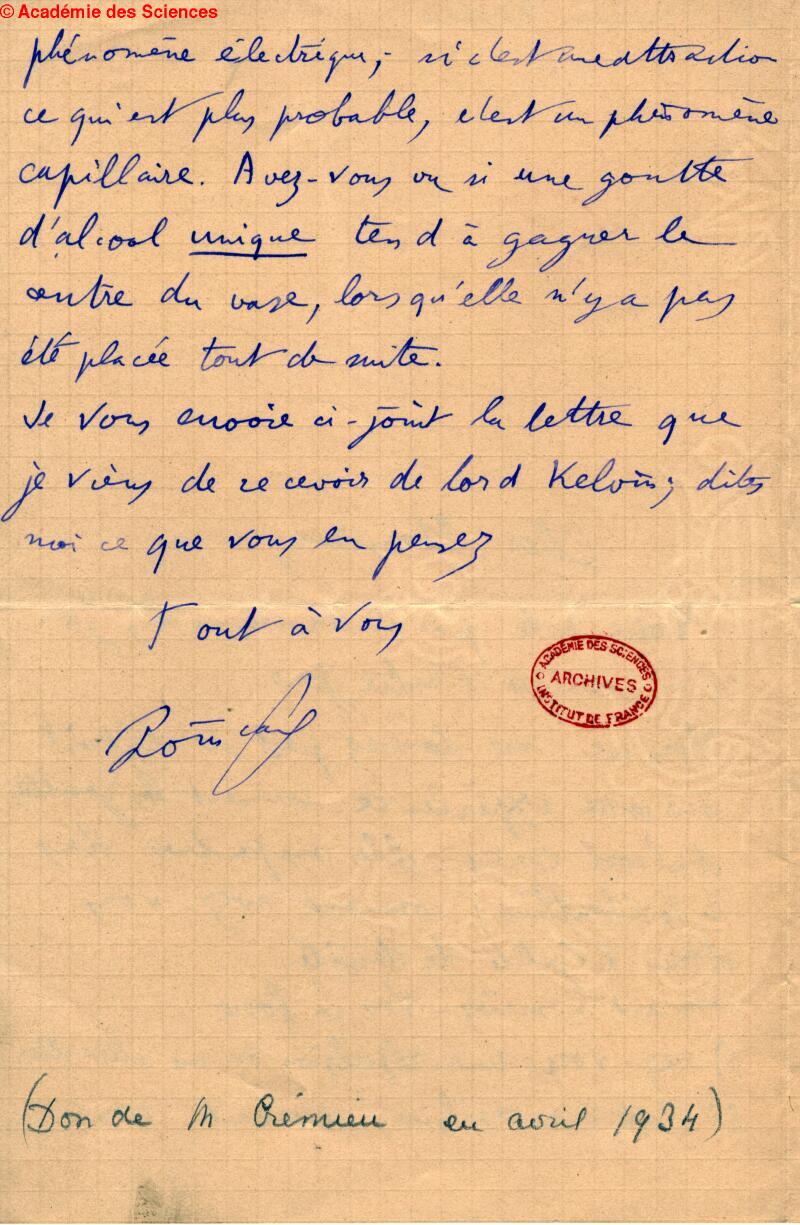 © Académie des Sciences
phénomène électrique ; si c'est une attraction
ce qui est plus probable, c'est un phénomène
capillaire. Avez-vous vu si une goutte
d'alcool unique tend à gagner le
centre du vase, lorsqu'elle n'y a pas
été placée tout de suite.
Je vous envoie ci-joint la lettre que
je viens de recevoir de lord Kelvin ; dites
moi ce que vous en pensez
Tout à vous
Poincaré
ACADÉMIE DES SCIENCES
ARCHIVES
INSTITUT DE FRANCE
(Don de M Crémieu en avril 1934)